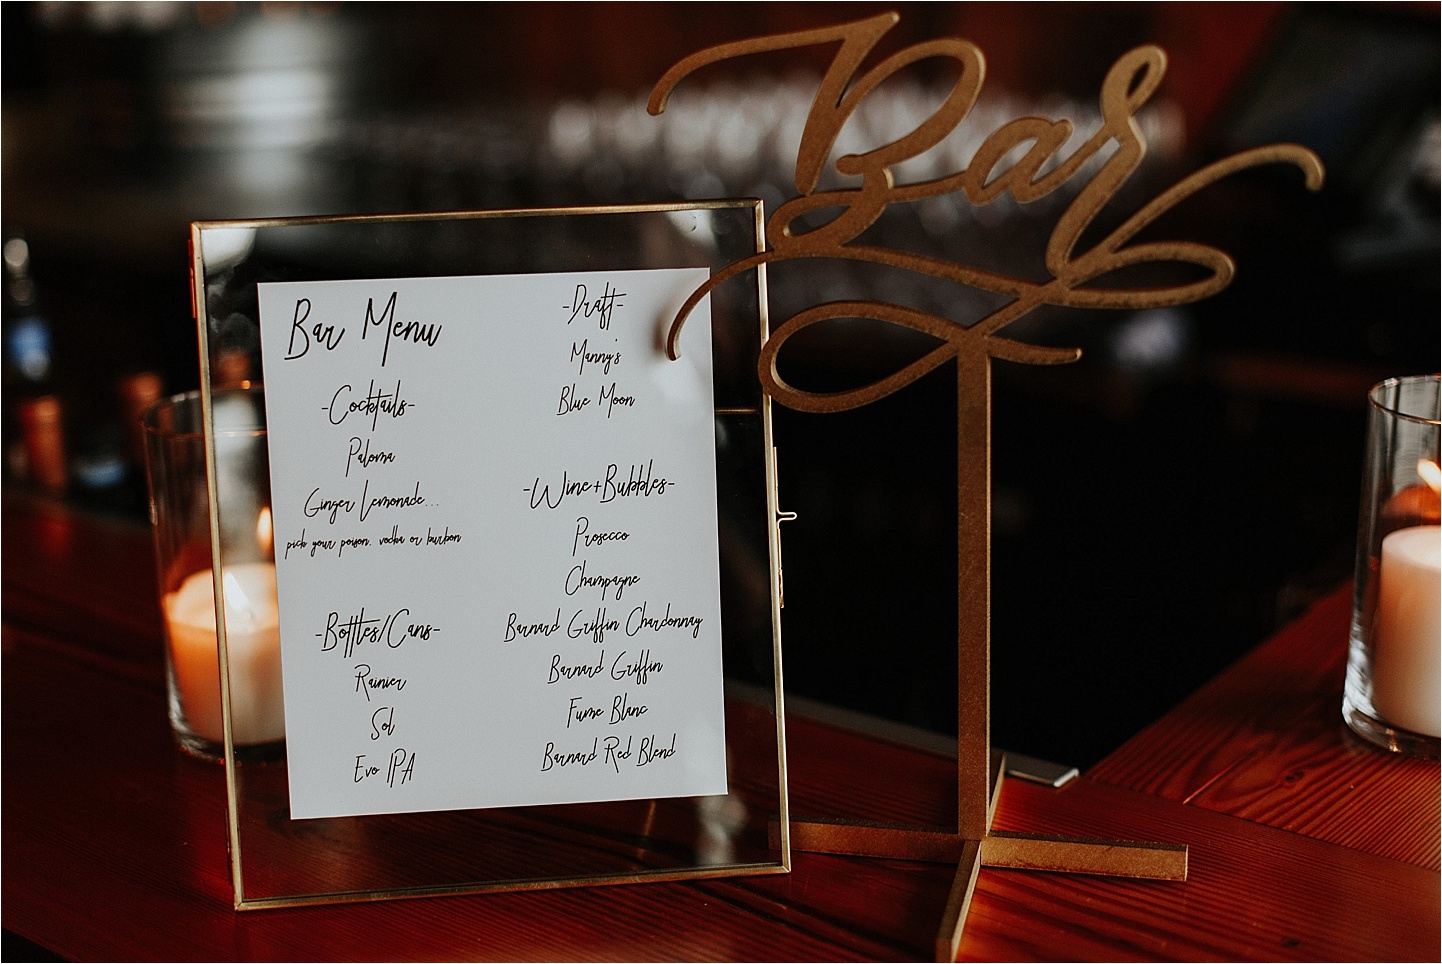 Bar Menu
-Cocktails-
Paloma
Ginger Lemonade...
pick your poison. vodka or burbon
-Bottles/Cans-
Rainier
Sol
Evo IPA
-Draft-
Manny's
Blue Moon
-Wine+Bubbles-
Prosecco
Champagne
Barnard Griffin Chardonnay
Barnard Griffin
Fume Blanc
Barnard Red Blend
Bar